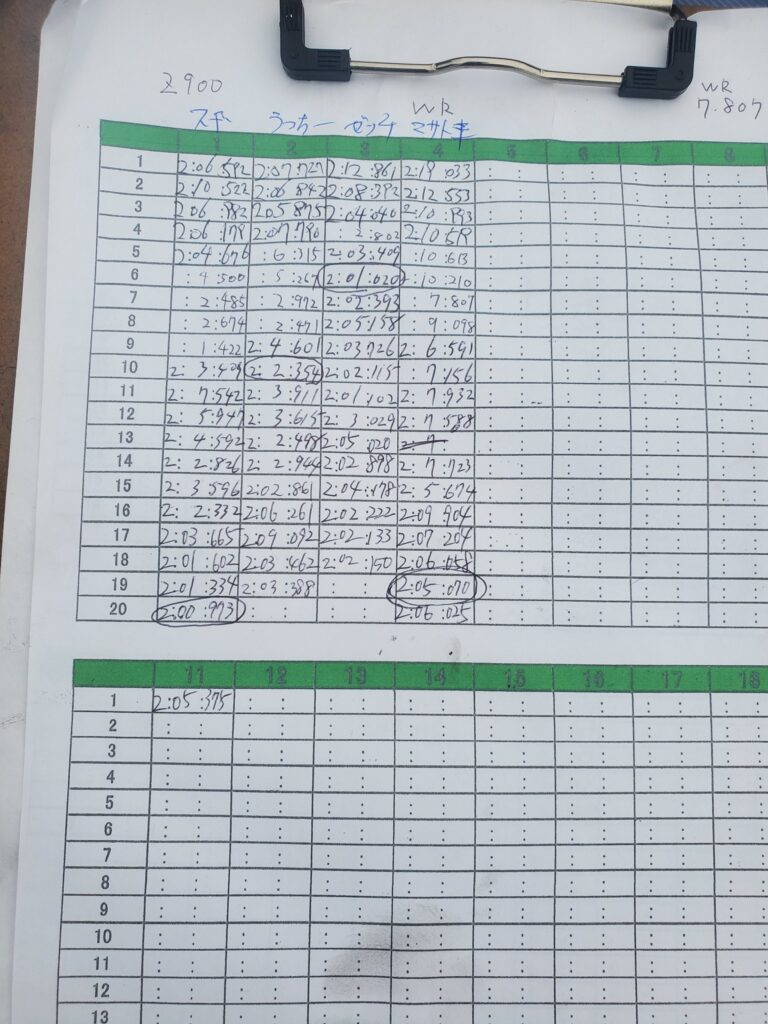 Z900
WR
7.807
WR
スギ うっちー ゼッツー マサトモ
1 2 3 4 5 6 7 8
1 2:06 592 2:07:727 2:12:861 2:19 033 : : : : : : : :
2 2:10:522 2:06 842 2:08:392 2:12 553 : : : : : : : :
3 206 :982 205 875 2:04:040 2:10 :893 : : : : : : : :
4 2:06 :179 2:07:790 : 2:802 2:10 : : : : : : : :
5 2:04:676 : 6 :315 2:03:409 :10 :613 : : : : : : : :
6 : 4 :500 : 5 :267 2:01:020 :10 :210 : : : : : : : :
7 : 2:485 : 2:972 2:02:393 : 7:807 : : : : : : : :
8 : 2:674 : 2:471 2:05:158 : 9 :098 : : : : : : : :
9 : 1:422 2: 4 :601 2:03:726 2: 6 :591 : : : : : : : :
10 2: 3:409 2: 2:354 2:02:115 : 7:156 : : : : : : : :
11 2: 7:542 2: 3 :911 2:01:102 2: 7 :932 : : : : : : : :
12 2: 5:947 2: 3:615 2: 3 :029 2: 7 :588 : : : : : : : :
13 2: 4:592 2: 2:498 2:05 :020 2: 7 : : : : : : : :
14 2: 2:826 2: 2 :944 2:02 :898 2: 7 :723 : : : : : : : :
15 2: 3 596 2:02:861 2:04:178 2: 5:674 : : : : : : : :
16 2: 2:332 2:06 :261 2:02:222 2:09 :904 : : : : : : : :
17 2:03:665 2:09 :092 2:02:133 2:07 :204 : : : : : : : :
18 2:01:602 2:03:462 2:02:150 2:06:058 : : : : : : : :
19 2:01:334 2:03:388 : : 2:05:070 : : : : : : : :
20 2:00:993 : : : : 2:06 :025 : : : : : : : :
11 12 13 14 15 16 17 18
1 2:05:375 : : : : : : : : : : : : : :
2 : : : : : : : : : : : : : : : :
3 : : : : : : : : : : : : : : : :
4 : : : : : : : : : : : : : : : :
5 : : : : : : : : : : : : : : : :
6 : : : : : : : : : : : : : : : :
7 : : : : : : : : : : : : : : : :
8 : : : : : : : : : : : : : : : :
9 : : : : : : : : : : : : : : : :
10 : : : : : : : : : : : : : : : :
11 : : : : : : : : : : : : : : : :
12 : : : : : : : : : : : : : : : :
13 : : : : : : : : : : : : : : : :